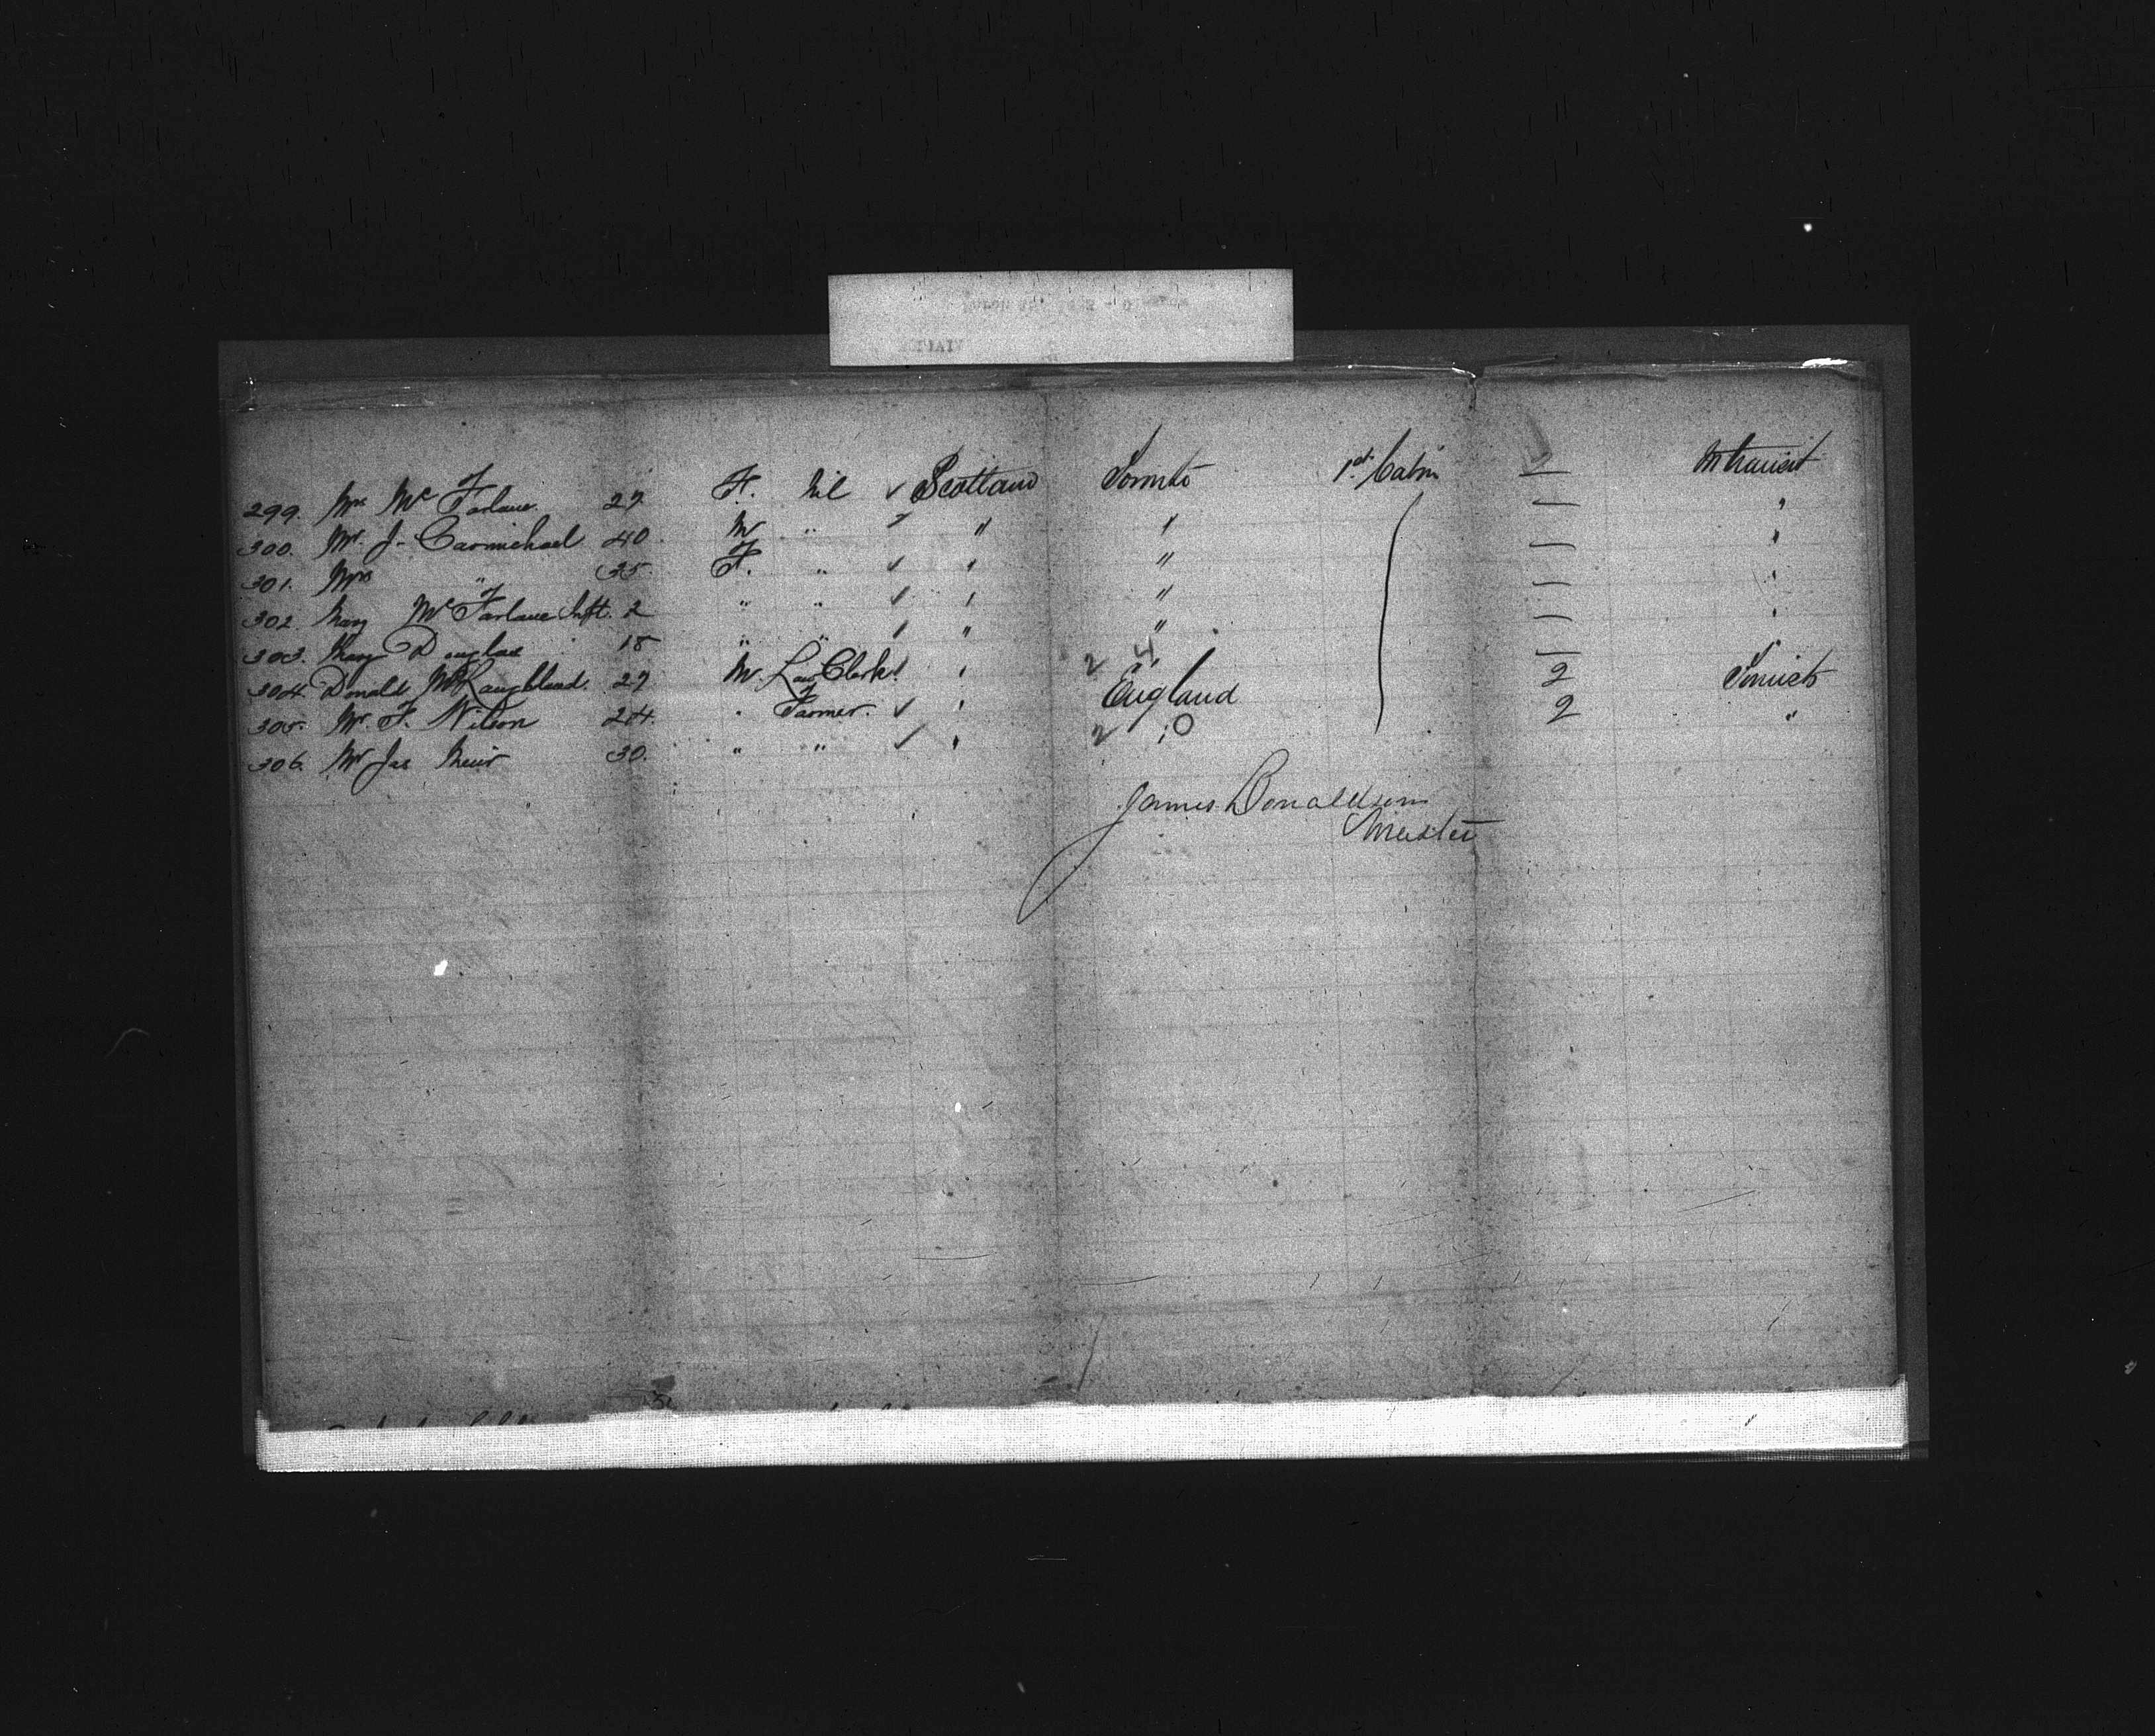 299. Mrs McFarlane 27 F. Nil ✓ Scotland Toronto 1st Cabin — In transit
300. Mr. J. Carmichael 40 M " ✓ " " — "
301. Mrs " 35 F. " ✓ " " — "
302. Mary McFarlane Inft. 2 " " ✓ " " — "
303. Mary Douglas 18 " " ✓ " " — "
304. Donald 27 M. Law Clerk ✓ " 2 4 —
305. Mr. F. Wilson 24 " Farmer. ✓ " England 2 Tourists
306. Mr Jas Meur 30. " " ✓ " 2 10 2 "
James Donaldson
Master